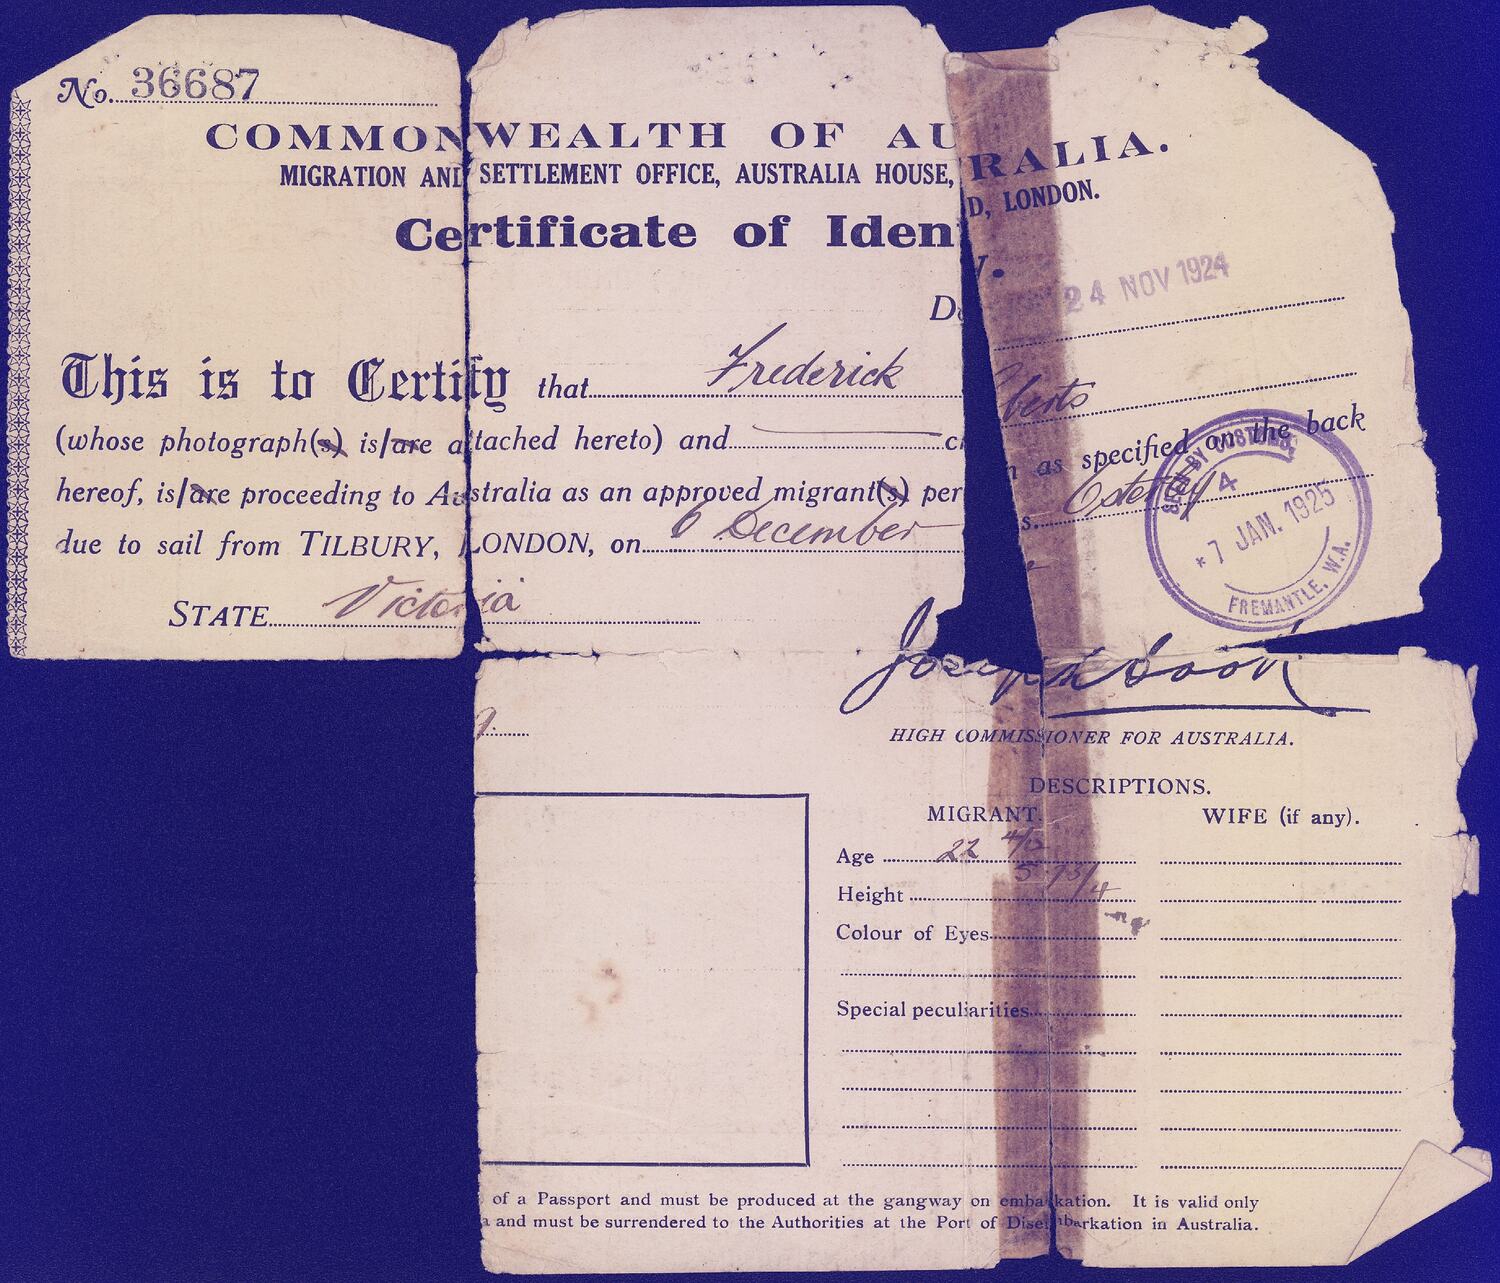 No. 36687
COMMONWEALTH OF AU RALIA.
MIGRATION AND SETTLEMENT OFFICE, AUSTRALIA HOUSE, D, LONDON.
Certificate of Iden y.
Da 24 NOV 1924
This is to Certify that Frederick berts
(whose photograph(s) is/are attached hereto) and c n as specified on the back
hereof, is/are proceeding to Australia as an approved migrant(s) per s. Osterley
due to sail from TILBURY, LONDON, on 6 December
SEEN BY CUSTOMS
4
* 7 JAN. 1925
FREMANTLE. W.A.
STATE Victoria
Joseph Cook
HIGH COMMISSIONER FOR AUSTRALIA.
DESCRIPTIONS.
MIGRANT. WIFE (if any).
Age 22 4/12
Height 5 7 3/4
Colour of Eyes
Special peculiarities
of a Passport and must be produced at the gangway on embarkation. It is valid only
a and must be surrendered to the Authorities at the Port of Disembarkation in Australia.